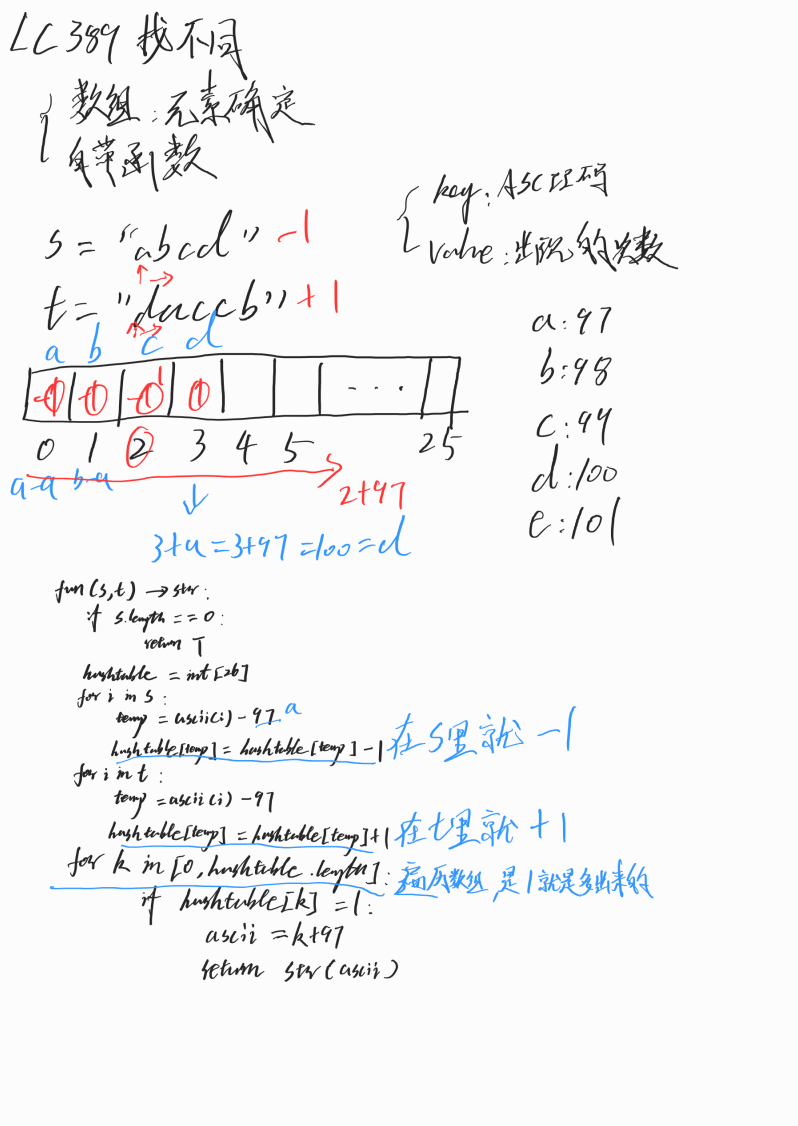 LC 389 找不同
数组:元素确定
自带函数
key:ASCII码
value:出现的次数
s = "abcd" -1
t = "daccb" +1
a b c d
-1 -1 -1 1
...
0 1 2 3 4 5 25
a-a b-a
2+97
3+a=3+97=100=d
a:97
b:98
c:99
d:100
e:101
fun(s,t) → str:
if s.length == 0:
return T
hashtable = int[26]
for i in s:
temp = ascii(i) - 97 a
hashtable[temp] = hashtable[temp] - 1 在s里就 -1
for i in t:
temp = ascii(i) - 97
hashtable[temp] = hashtable[temp] + 1 在t里就 +1
for k in [0, hashtable.length]: 遍历数组,是1就是多出来的
if hashtable[k] = 1:
ascii = k+97
return str(ascii)